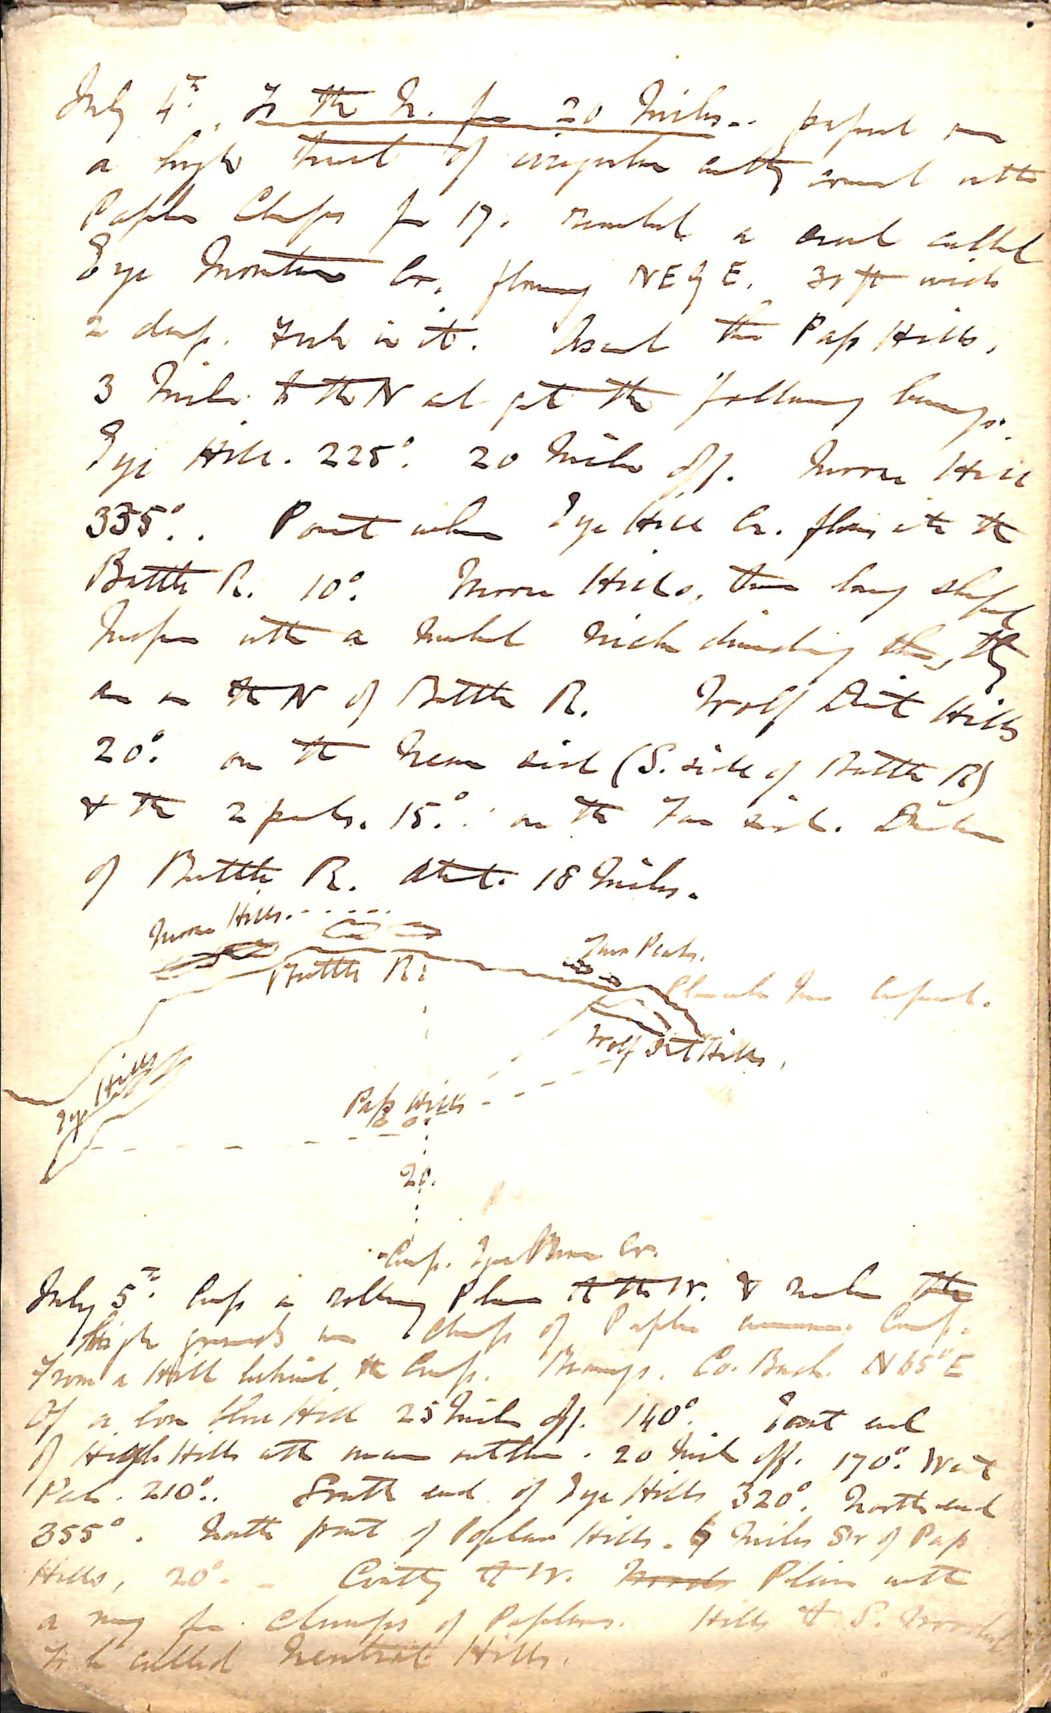 July 4th. To the N. for 20 Miles. passed over
a high tract of irregular country covered with
Poplar Clumps for 17. reached a creek called
Eye Mountain Cr. flowing NE of E. 30 ft wide
2 deep. Fish in it. Ascend the Pap Hills,
3 Miles to the N and get the following bearings.
Eye Hill. 225°. 20 Miles off. Moose Hill
335°. Point where Eye Hill Cr. flows into the
Battle R. 10°. Moose Hills, two long shaped
with a marked dividing them, they
are on the N of Battle R. Wolf Dint Hills
20°. on the near side (S. side of Battle R)
& the 2 peaks. 15°. on the Far side. Distance
of Battle R. about 18 Miles.
Moose Hills.
Two Peaks.
Battle R.
Wolf Dint Hills.
Eye Hills
Pap Hills
20.
Camp. Eye Cr.
July 5th. Camp in rolling Plain to the W. & under the
High grounds clump of Poplar Camp.
From a Hill behind the Camp. Bearings. Co. Back. N 65° E
Of a low blue Hill 25 Miles off. 140°. East end
of High Hills with outline. 20 Miles off. 170°. West
Peak. 210°. South end of Eye Hills 320°. North end
355°. North point of Poplar Hills. 6 Miles SW of Pap
Hills, 20°. Country to W. Plain with
a very few clumps of Poplars. Hills to S. Wooded
To be called Neutral Hills.